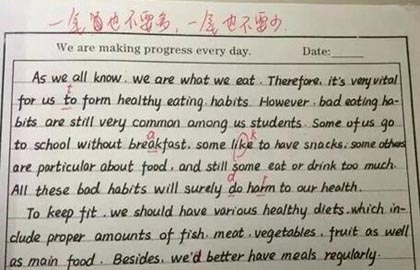 一也不要多，一也不要少.
We are making progress every day. Date:_____
As we all know, we are what we eat. Therefore, it's very vital
t
for us to form healthy eating habits. However, bad eating ha-
bits are still very common among us students. Some of us go
a k
to school without breakfast, some like to have snacks, some others
are particular about food, and still some eat or drink too much.
d r
All these bad habits will surely do harm to our health.
To keep fit, we should have various healthy diets, which in-
clude proper amounts of fish, meat, vegetables, fruit as well
as main food. Besides, we'd better have meals regularly.